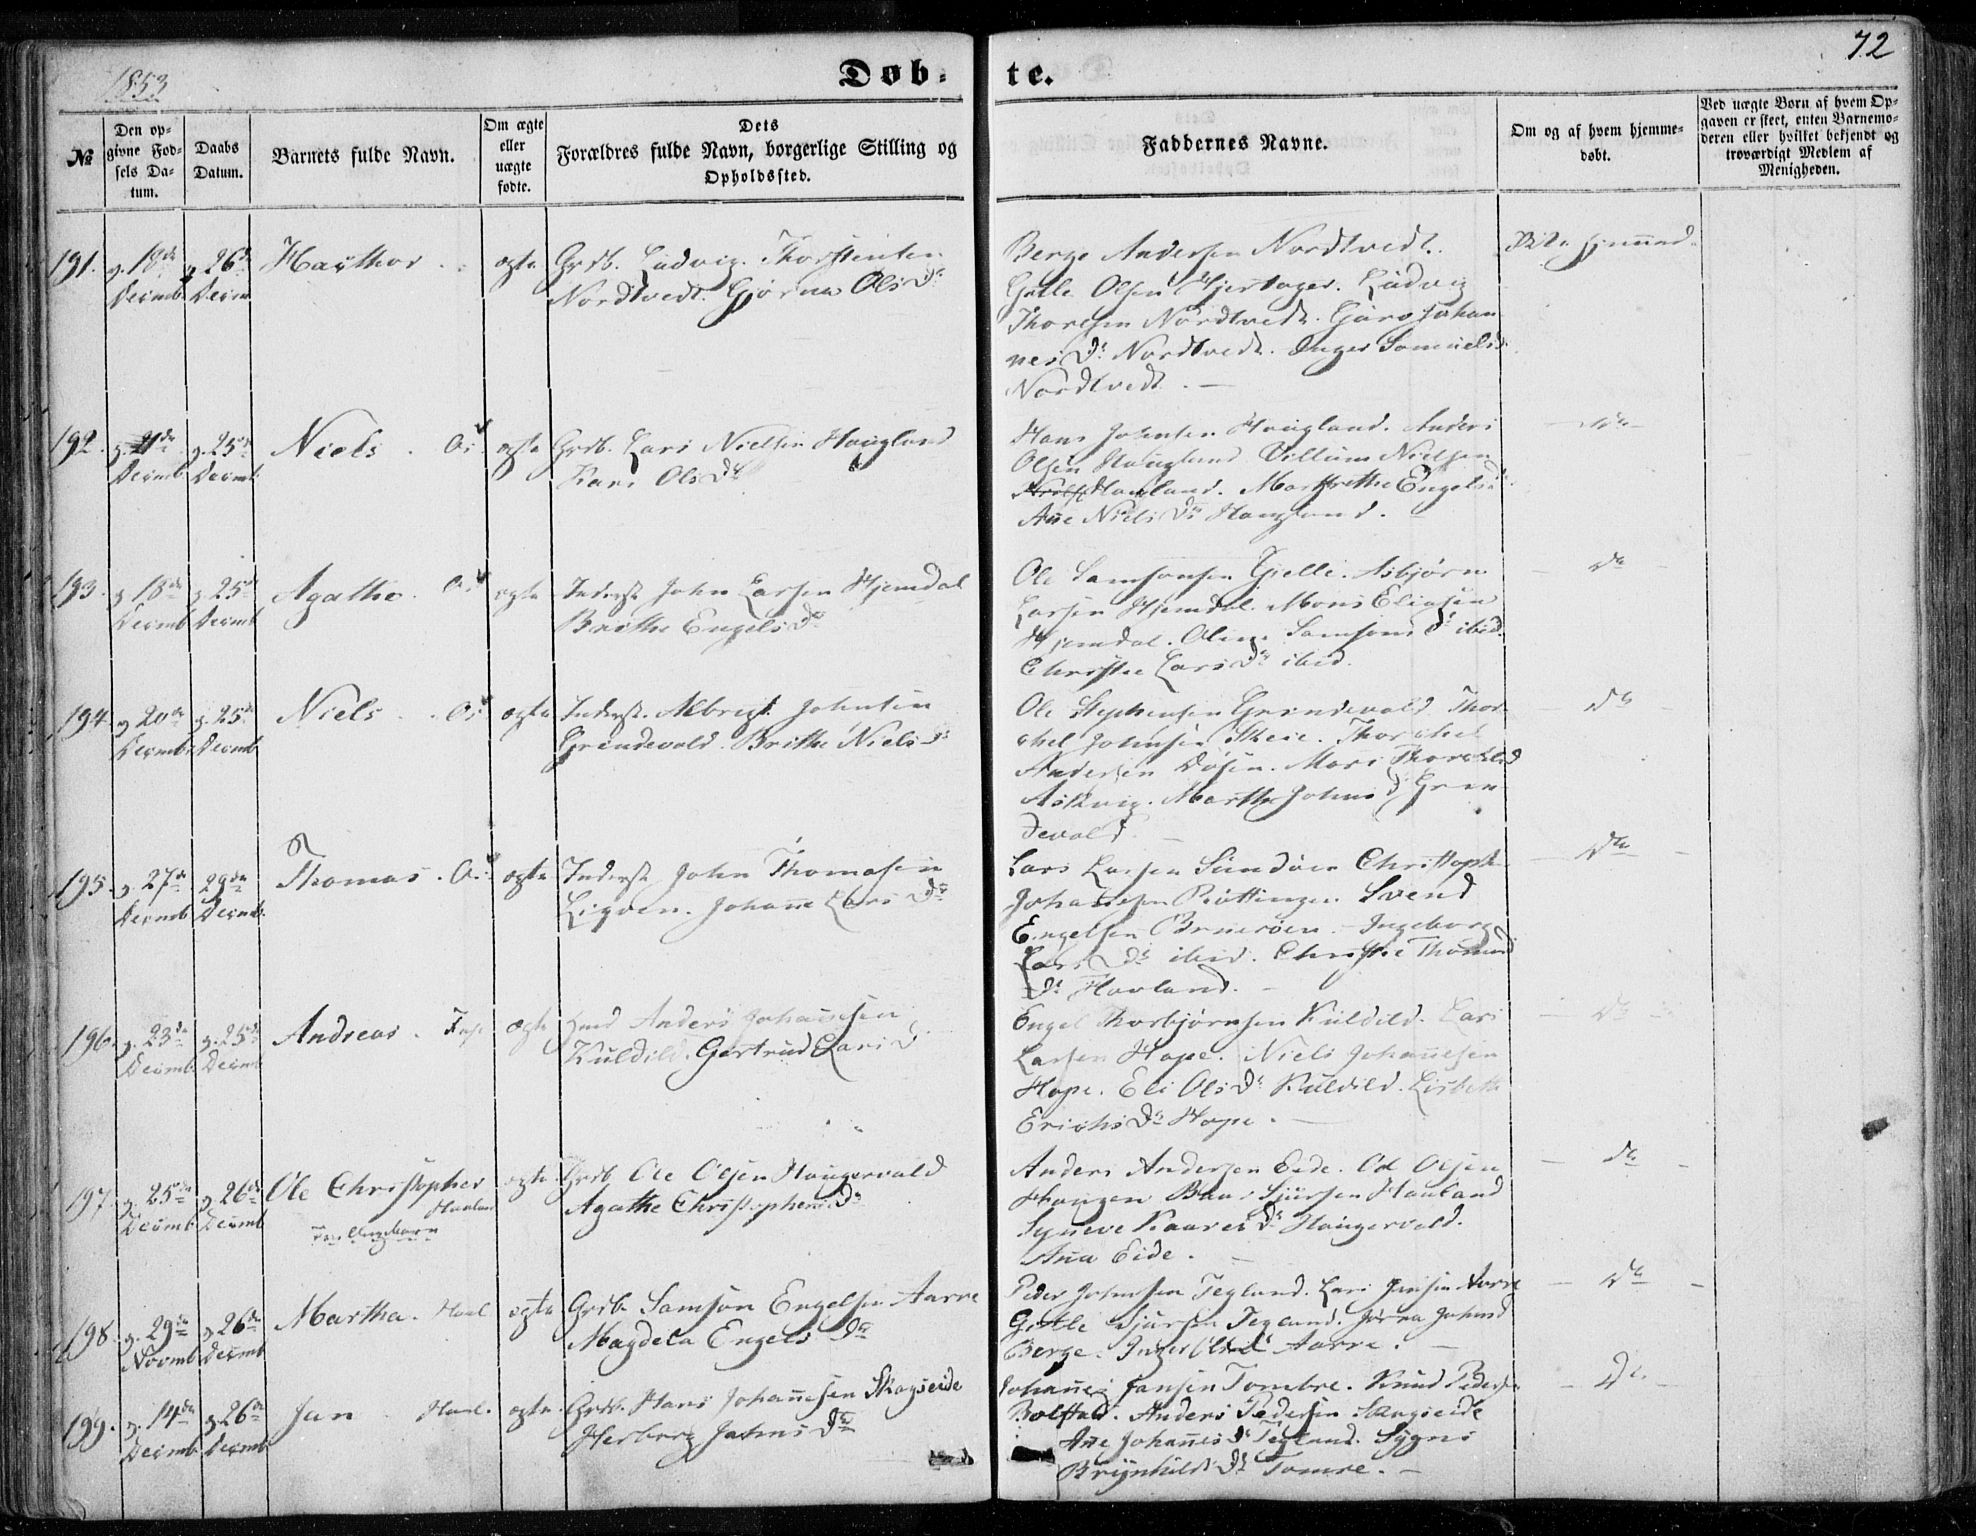 1853
Døb-
te.
72
№
Den op-
givne Fød-
sels Da-
tum.
Daabs
Datum.
Barnets fulde Navn.
Om ægte
eller
uægte
fødte.
Dets
Forældres fulde Navn, borgerlige Stilling og
Opholdssted.
Faddernes Navne.
Om og af hvem hjemme-
døbt.
Ved uægte Børn af hvem Op-
gaven er skeet, enten Barnemo-
deren eller hvilket bekjendt og
troværdigt Medlem af
Menigheden.
191. 18de 26de ægte Grdb. Ludvig Thorstensen
Decmb Decm Nordtvedt. Olsdr
Berge Andersen Nordtvedt.
Gitle Olsen Hjertager. Ludvig
Thoresen Nordtvedt. Johan
nesdr Nordtvedt. Inger Samuelsd
Nordtvedt. —
192. 25de Niels. Os ægte Grdb. Lars Nielsen Haugland
Decmb Decmb Kari Olsdr
Hans Johnsen Haugland. Anders
Olsen Hauglund Villum Nielsen
Haugland. Marthrethe Engelsd
Ane Nielsdr Haugland.
— do —
193. 18de 25de Agathe. Os ægte Inderst John Larsen Hjemdal
Decmb Decmb Brithe Engelsdr
Ole Samsonsen Gjelle. Asbjørn
Larsen Hjemdal. Mons Eliasen
Hjemdal. Oline Samsonsdr ibid.
Christie Larsdr ibid.
— do —
194. 20de 25de Niels. Os ægte Inderst. Albrigt Johnsen
Decmb Decmb Grindevold. Brithe Nielsdr
Ole Stephensen Grindevold Thor
chel Johnsen Skeie. Thorchel
Andersen Døsen. Mari Thorchelsd
Askvig. Martha Johnsd Grin
devold. —
— do —
195. 27de 29de Thomas. Os ægte Inderst John Thomasen
Decmb Decmb Ligven. Johane Larsdr
Lars Larsen Sundøen Christoph
Johanesen Røttingen Svend
Engelsen — Ingeborg
Larsdr ibid. Christie Thomas
dr Havland. —
— do —
196. 23de 25de Andreas. ægte Anders Johannesen
Decmb Decmb Kuldild. Gjertrud Larsd
Engel Thorbjørnsen Kuldild. Lars
Larsen Hope. Niels Johannesen
Hope. Eli Olsdr Kuldild. Lisbeth
Erichsdr Hope. —
— do —
197. 25de 26de Ole Christopher ægte Grdb Ole Olsen Haugervold
Decmb Decmb Agathe Christophersdr
Anders Andersen Eide. Ole Olsen
Haugen Sjursen Hauland
Synneve Kaaresdr Haugervold.
Ana Eide. —
— do —
198. 29de 26de Martha. Haul ægte Grdb. Samson Engelsen Aarre
Novmb Decmb Magdela Engelsdr
Peder Johnsen Tegland. Lars Jansen Aarre
Gitle Sjursen Tegland. Johnsd
Berge. Inger Olsdr Aarre. —
— do —
199. 14de 26de Jan. Haul. ægte Grdb. Hans Johannesen Skogseide
Decmb Decmb Herborg Jahnsdr
Johannes Jansen Tombre. Knud Pedersen
Bolstad. Anders Pedersen Skogseide
Ane Johannesdr Tegland. Sygni
Brynhildsdr Tomre. —
— do —